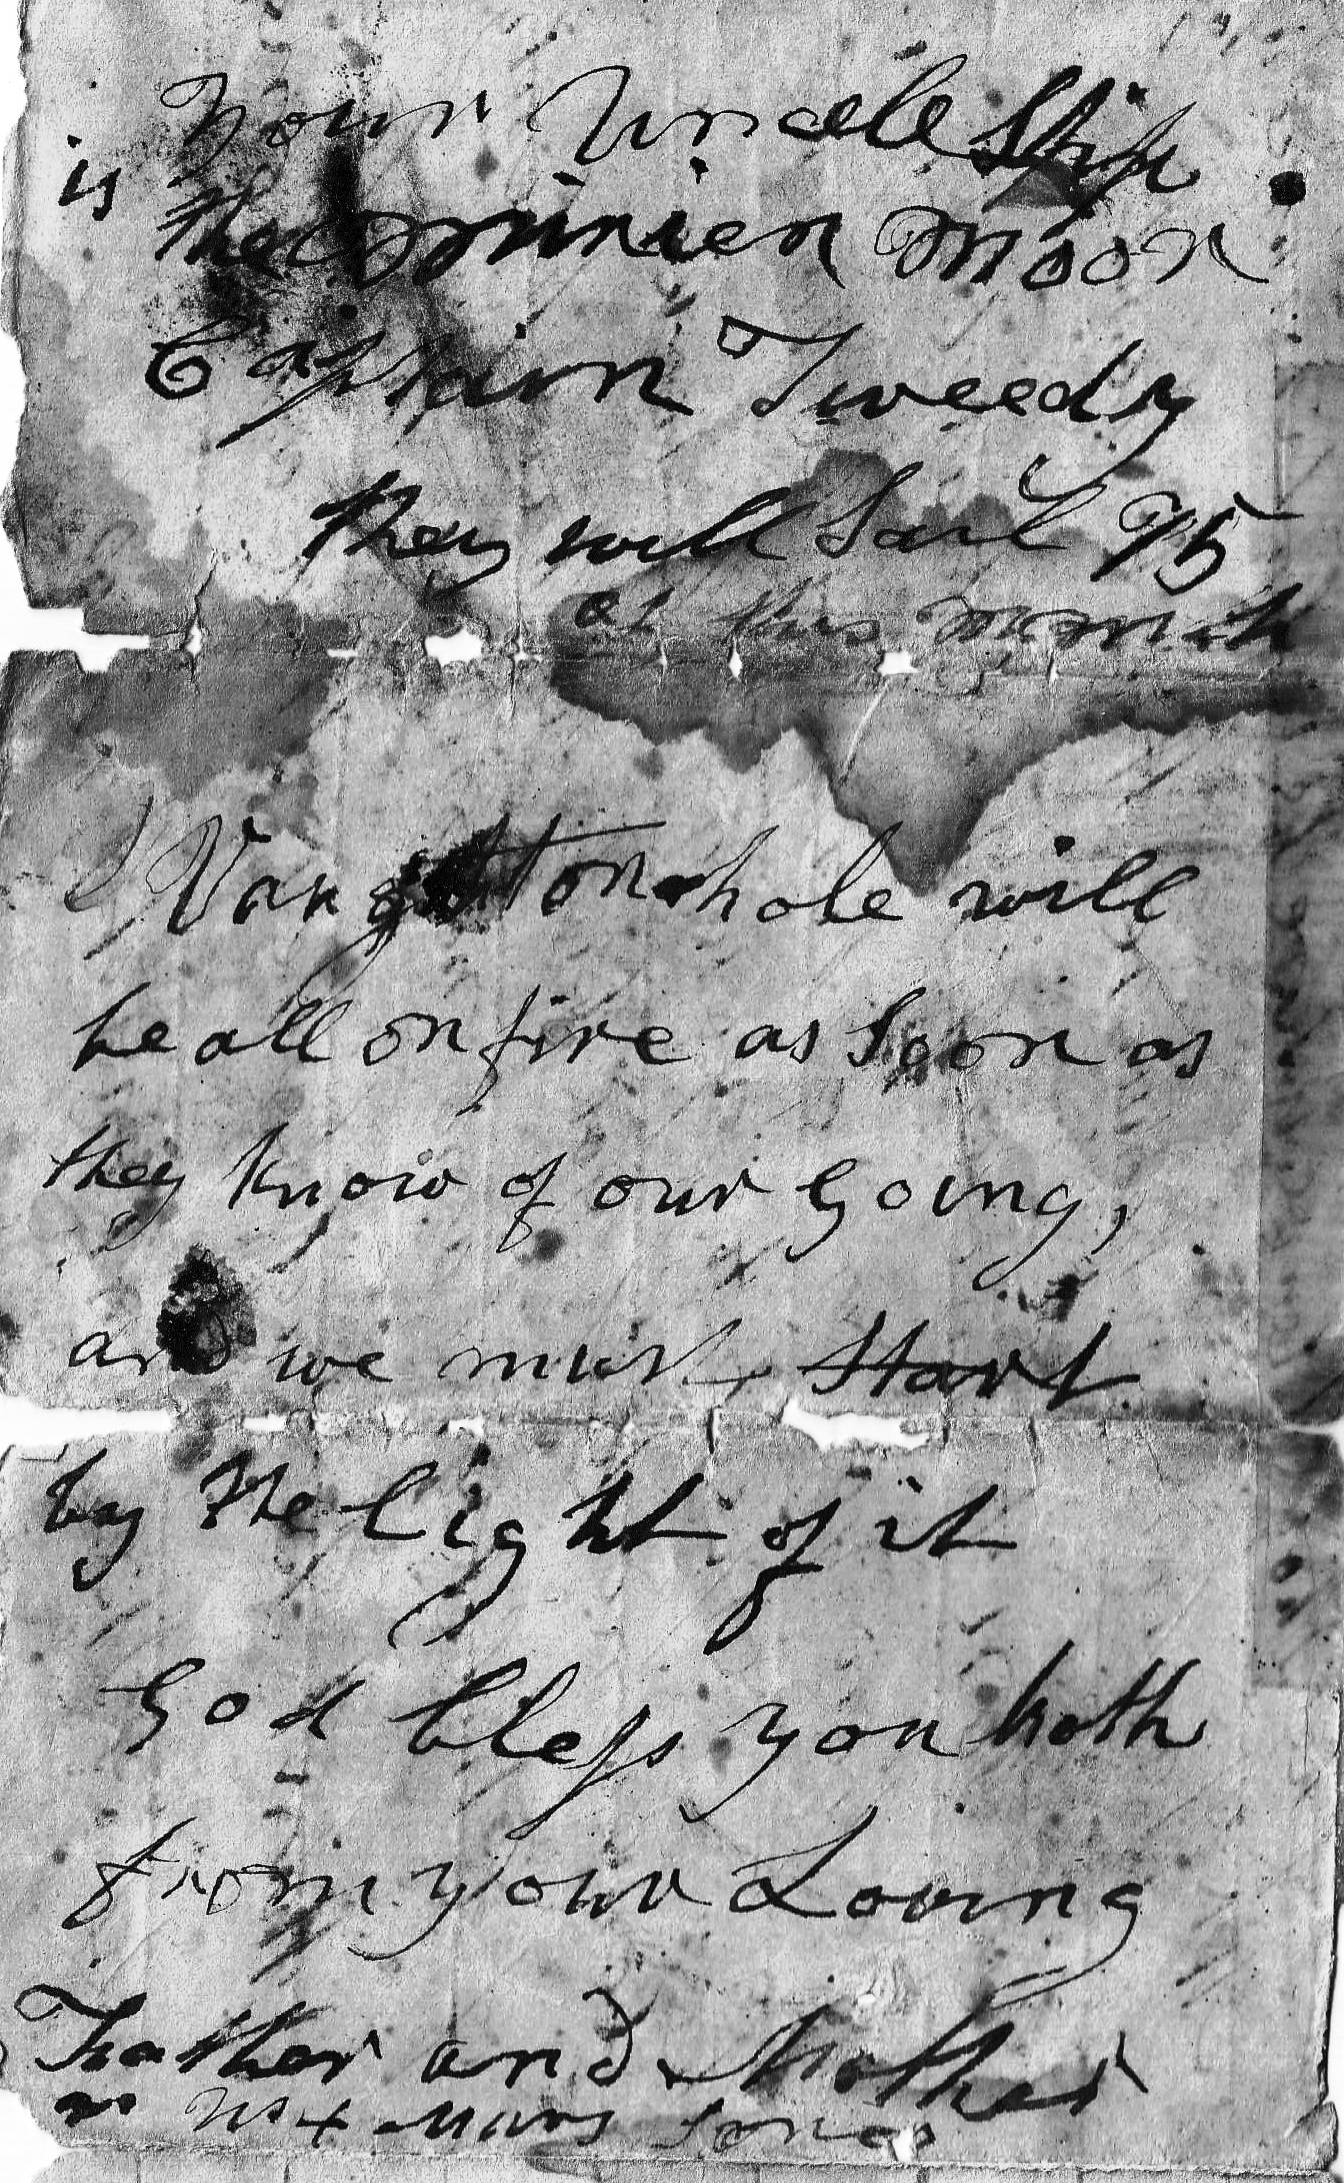 Your Uncle Ship
is the Crminien Moon
Captain Tweedy
they will Sail 15
of this Month
Vangstonehole will
be all on fire as Soon as
they know of our Going,
and we must Start
by the light of it
God bless you both
from your Loving
Father and Mother
Mr & Mars Jones